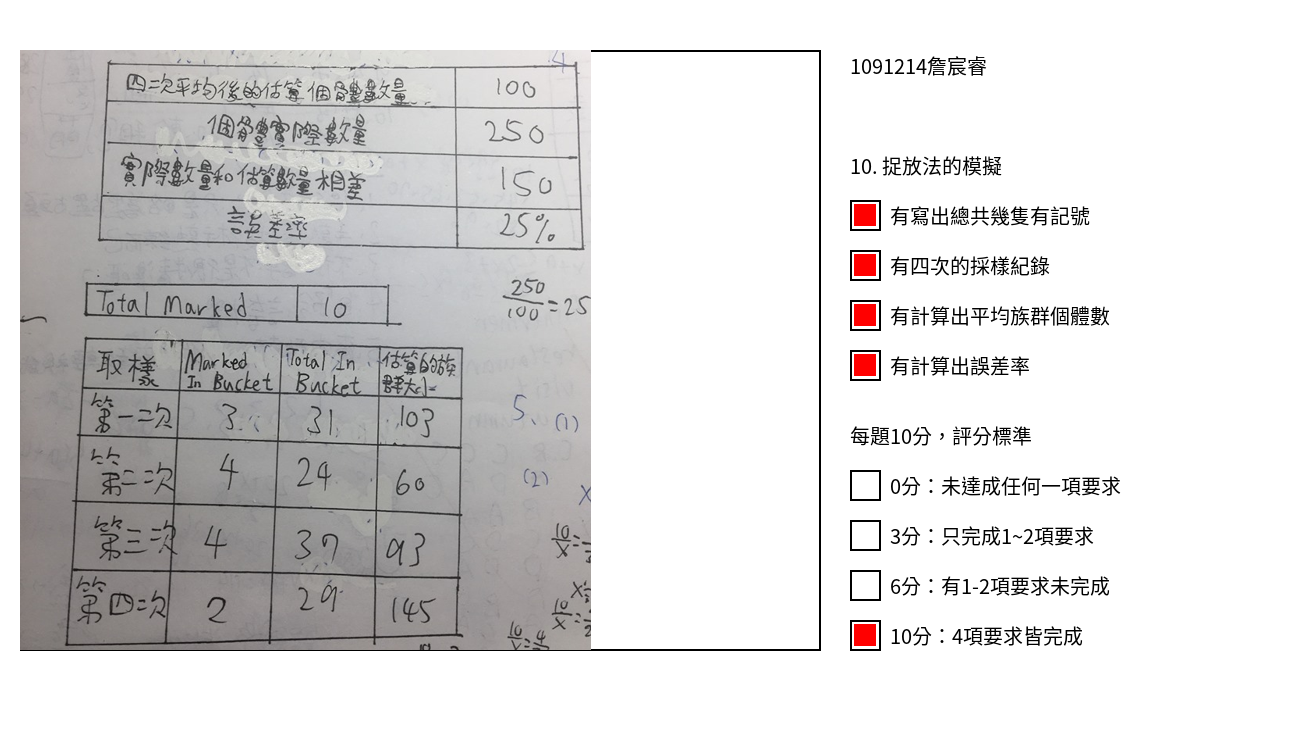 4
四次平均後的估算個體數量 100
個體實際數量 250
實際數量和估算數量相差 150
誤差率 25%
Total Marked 10
250/100=25
取樣 Marked In Bucket Total In Bucket 估算的族群大小
第一次 3 31 103
第二次 4 24 60
第三次 4 37 93
第四次 2 29 145
5. (1)
(2)
1091214詹宸睿
10. 捉放法的模擬
有寫出總共幾隻有記號
有四次的採樣紀錄
有計算出平均族群個體數
有計算出誤差率
每題10分，評分標準
0分：未達成任何一項要求
3分：只完成1~2項要求
6分：有1-2項要求未完成
10分：4項要求皆完成